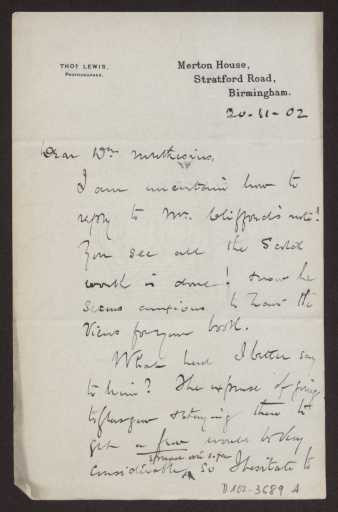 THOS LEWIS,
PHOTOGRAPHER.
Merton House,
Stratford Road,
Birmingham.
20-11-02
Dear Dr Muthesius,
I am uncertain how to
reply to Mr. Clifford's note!
You see all the Scotch
work is done! & now he
seems anxious to have the
views for your book.
What had I better say
to him? The expense of going
to Glasgow & staying there to
get a few would be very
considerable, so I hesitate to
D 102-3689 A